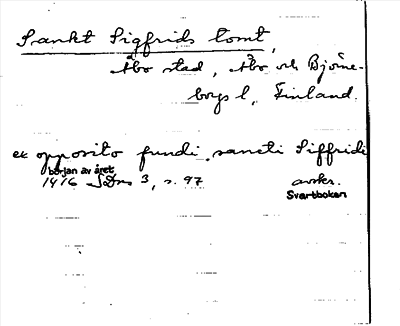 Sankt Sigfrids tomt,
Åbo stad, Åbo och Björne-
borgs l, Finland.
ex opposito fundi sancti Siffridi
början av året
1416 SDns 3, s. 97
avskr.
Svartboken